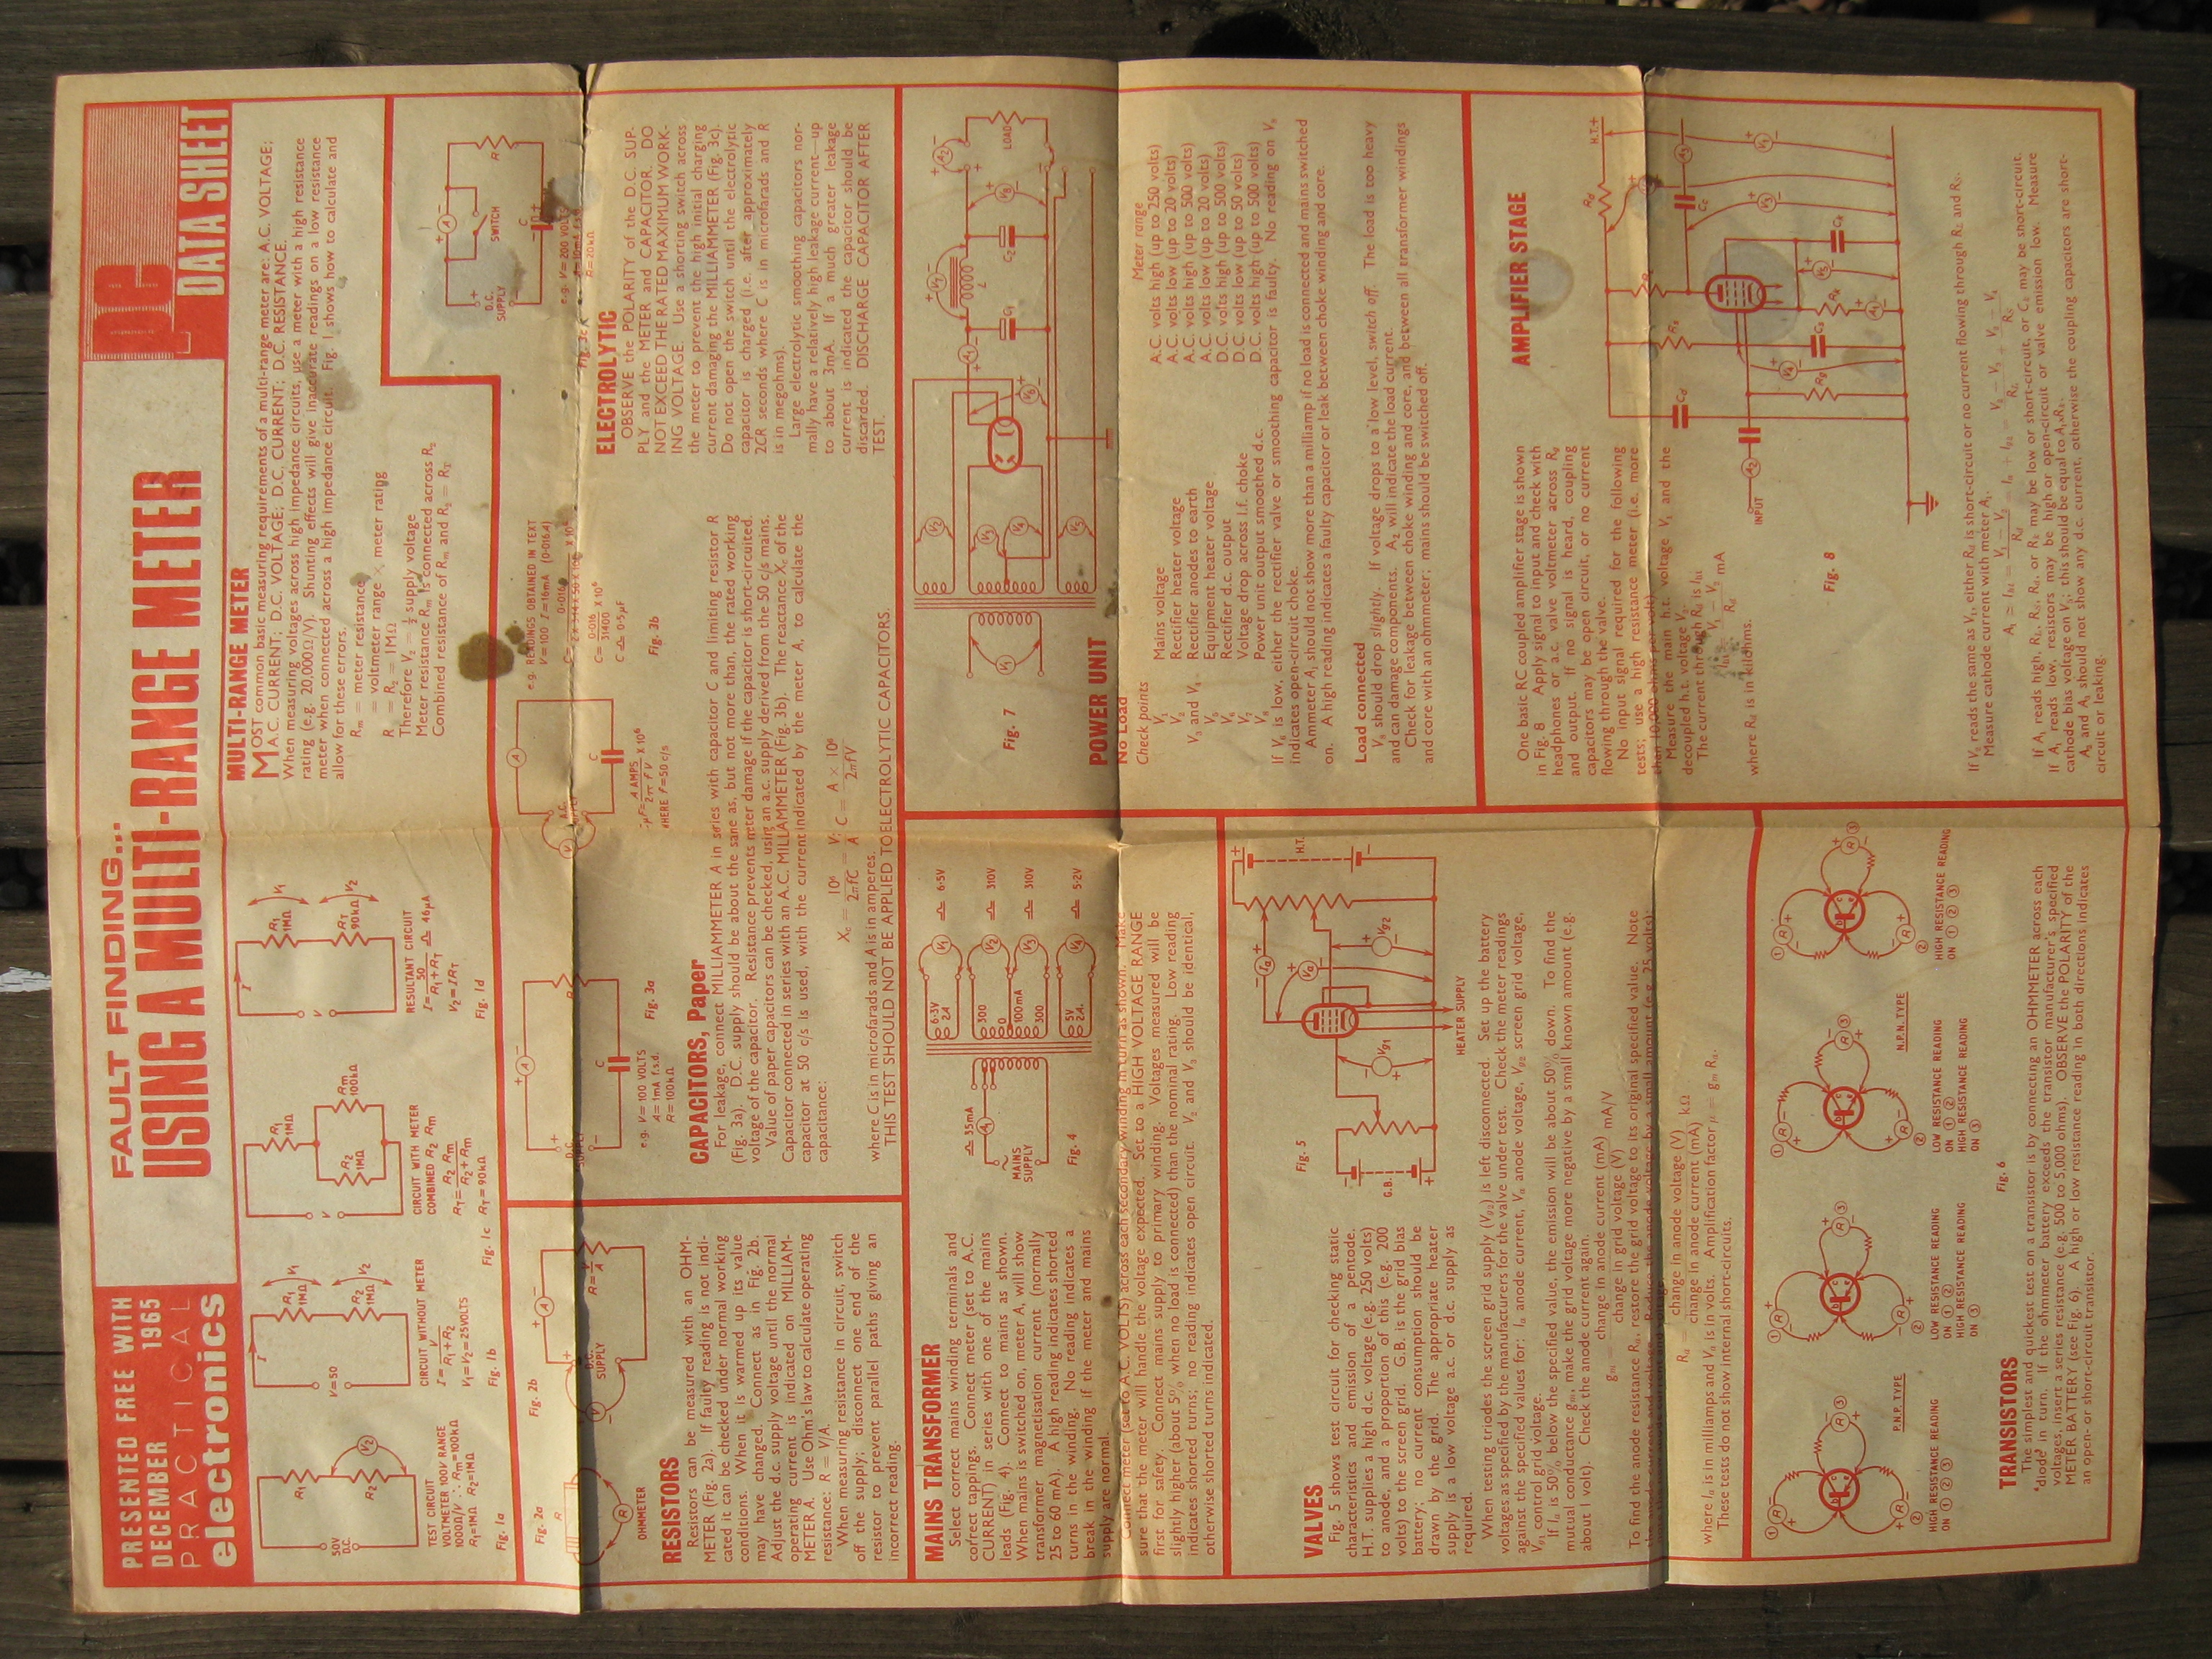 PRESENTED FREE WITH
DECEMBER 1965
PRACTICAL
electronics
FAULT FINDING...
USING A MULTI-RANGE METER
pe
DATA SHEET
50V D.C.
R₁
R₂
V₂
TEST CIRCUIT
VOLTMETER 100V RANGE
1000Ω/V ∴ Rm=100kΩ
R₁=1MΩ R₂=1MΩ
Fig. 1a
I
V=50
R₁ 1MΩ
V₁
R₂ 1MΩ
V₂
CIRCUIT WITHOUT METER
I= V / R₁+R₂
V₁=V₂=25VOLTS
Fig. 1b
V
R₁ 1MΩ
R₂ 1MΩ
Rm 100kΩ
CIRCUIT WITH METER
COMBINED R₂ Rm
RT= R₂ Rm / R₂+Rm
RT=90kΩ
Fig. 1c
I
V
R₁ 1MΩ
V₁
RT 90kΩ
V₂
RESULTANT CIRCUIT
I= 50 / R₁+RT ≏ 46μA
V₂=IRT
Fig. 1d
MULTI-RANGE METER
MOST common basic measuring requirements of a multi-range meter are: A.C. VOLTAGE;
A.C. CURRENT; D.C. VOLTAGE; D.C. CURRENT; D.C. RESISTANCE.
When measuring voltages across high impedance circuits, use a meter with a high resistance
rating (e.g. 20,000Ω/V). Shunting effects will give inaccurate readings on a low resistance
meter when connected across a high impedance circuit. Fig. 1 shows how to calculate and
allow for these errors.
Rm = meter resistance
= voltmeter range × meter rating
R = R₂ = 1MΩ
Therefore V₂ = ½ supply voltage
Meter resistance Rm is connected across R₂
Combined resistance of Rm and R₂ = RT
Fig. 2a
R
OHMMETER
Fig. 2b
A
V
D.C. SUPPLY
R= V/A
RESISTORS
Resistors can be measured with an OHM-
METER (Fig. 2a). If faulty reading is not indi-
cated it can be checked under normal working
conditions. When it is warmed up its value
may have changed. Connect as in Fig. 2b.
Adjust the d.c. supply voltage until the normal
operating current is indicated on MILLIAM-
METER A. Use Ohm's law to calculate operating
resistance: R = V/A.
When measuring resistance in circuit, switch
off the supply; disconnect one end of the
resistor to prevent parallel paths giving an
incorrect reading.
A
R
D.C. SUPPLY
C
e.g. V=100 VOLTS
A=1mA f.s.d.
R=100kΩ
Fig. 3a
A
V
A.C.
C
μF= A AMPS × 10⁶ / 2π F V
WHERE f=50 c/s
e.g. READINGS OBTAINED IN TEXT
V=100 I=16mA (0·016A)
C= 0·016 ×10⁶ / 31400
C ≏ 0·5μF
Fig. 3b
CAPACITORS, Paper
For leakage, connect MILLIAMMETER A in series with capacitor C and limiting resistor R
(Fig. 3a). D.C. supply should be about the same as, but not more than, the rated working
voltage of the capacitor. Resistance prevents meter damage if the capacitor is short-circuited.
Value of paper capacitors can be checked, using an a.c. supply derived from the 50 c/s mains.
Capacitor connected in series with an A.C. MILLAMMETER (Fig. 3b). The reactance Xc of the
capacitor at 50 c/s is used, with the current indicated by the meter A, to calculate the
capacitance:
Xc = 10⁶ / 2πfC = V / A; C = A × 10⁶ / 2πfV
where C is in microfarads and A is in amperes.
THIS TEST SHOULD NOT BE APPLIED TO ELECTROLYTIC CAPACITORS.
A
SWITCH
R
D.C. SUPPLY
C
e.g. V=200 VOLTS
R=20kΩ
ELECTROLYTIC
OBSERVE the POLARITY of the D.C. SUP-
PLY and the METER and CAPACITOR. DO
NOT EXCEED THE RATED MAXIMUM WORK-
ING VOLTAGE. Use a shorting switch across
the meter to prevent the high initial charging
current damaging the MILLIAMMETER (Fig. 3c).
Do not open the switch until the electrolytic
capacitor is charged (i.e. after approximately
2CR seconds where C is in microfarads and R
is in megohms).
Large electrolytic smoothing capacitors nor-
mally have a relatively high leakage current—up
to about 3mA. If a much greater leakage
current is indicated the capacitor should be
discarded. DISCHARGE CAPACITOR AFTER
TEST.
MAINS TRANSFORMER
Select correct mains winding terminals and
correct tappings. Connect meter (set to A.C.
CURRENT) in series with one of the mains
leads (Fig. 4). Connect to mains as shown.
When mains is switched on, meter A, will show
transformer magnetisation current (normally
25 to 60 mA). A high reading indicates shorted
turns in the winding. No reading indicates a
break in the winding if the meter and mains
supply are normal.
Connect meter (set to A.C. VOLTS) across each secondary winding in turn as shown. Make
sure that the meter will handle the voltage expected. Set to a HIGH VOLTAGE RANGE
first for safety. Connect mains supply to primary winding. Voltages measured will be
slightly higher (about 5% when no load is connected) than the nominal rating. Low reading
indicates shorted turns; no reading indicates open circuit. V₂ and V₃ should be identical,
otherwise shorted turns indicated.
≏ 35mA
A₁
MAINS SUPPLY
6·3V 2A
300
0
100mA
300
5V 2A.
V₁ ≏ 6·5V
V₂ ≏ 310V
V₃ ≏ 310V
V₄ ≏ 5·2V
Fig. 4
Fig. 7
POWER UNIT
No Load
Check points
Meter range
V₁ Mains voltage A.C. volts high (up to 250 volts)
V₂ Rectifier heater voltage A.C. volts low (up to 20 volts)
V₃ and V₄ Rectifier anodes to earth A.C. volts high (up to 500 volts)
V₅ Equipment heater voltage A.C. volts low (up to 20 volts)
V₆ Rectifier d.c. output D.C. volts high (up to 500 volts)
V₇ Voltage drop across l.f. choke D.C. volts low (up to 50 volts)
V₈ Power unit output smoothed d.c. D.C. volts high (up to 500 volts)
If V₆ is low, either the rectifier valve or smoothing capacitor is faulty. No reading on V₈
indicates open-circuit choke.
Ammeter A₁ should not show more than a milliamp if no load is connected and mains switched
on. A high reading indicates a faulty capacitor or leak between choke winding and core.
Load connected
V₈ should drop slightly. If voltage drops to a low level, switch off. The load is too heavy
and can damage components. A₂ will indicate the load current.
Check for leakage between choke winding and core, and between all transformer windings
and core with an ohmmeter; mains should be switched off.
VALVES
Fig. 5 shows test circuit for checking static
characteristics and emission of a pentode.
H.T. supplies a high d.c. voltage (e.g. 250 volts)
to anode, and a proportion of this (e.g. 200
volts) to the screen grid. G.B. is the grid bias
battery; no current consumption should be
drawn by the grid. The appropriate heater
supply is a low voltage a.c. or d.c. supply as
required.
Fig. 5
G.B.
Vg1
Ia
Va
Vg2
H.T.
HEATER SUPPLY
When testing triodes the screen grid supply (Vg2) is left disconnected. Set up the battery
voltages as specified by the manufacturers for the valve under test. Check the meter readings
against the specified values for: Ia anode current, Va anode voltage, Vg2 screen grid voltage,
Vg1 control grid voltage.
If Ia is 50% below the specified value, the emission will be about 50% down. To find the
mutual conductance gm, make the grid voltage more negative by a small known amount (e.g.
about 1 volt). Check the anode current again.
gm = change in anode current (mA) / change in grid voltage (V) mA/V
To find the anode resistance Ra, restore the grid voltage to its original specified value. Note
Ra = change in anode voltage (V) / change in anode current (mA) kΩ
where Ia is in milliamps and Va is in volts. Amplification factor μ = gm Ra.
These tests do not show internal short-circuits.
HIGH RESISTANCE READING
ON ① ② ③
P.N.P. TYPE
LOW RESISTANCE READING
ON ① ②
HIGH RESISTANCE READING
ON ③
LOW RESISTANCE READING
ON ① ②
HIGH RESISTANCE READING
ON ③
N.P.N. TYPE
HIGH RESISTANCE READING
ON ① ② ③
Fig. 6
TRANSISTORS
The simplest and quickest test on a transistor is by connecting an OHMMETER across each
"diode" in turn. If the ohmmeter battery exceeds the transistor manufacturer's specified
voltages, insert a series resistance (e.g. 500 to 5,000 ohms). OBSERVE the POLARITY of the
METER BATTERY (see Fig. 6). A high or low resistance reading in both directions indicates
an open- or short-circuit transistor.
AMPLIFIER STAGE
One basic RC coupled amplifier stage is shown
in Fig. 8. Apply signal to input and check with
headphones or a.c. valve voltmeter across Rg
and output. If no signal is heard, coupling
capacitors may be open circuit, or no current
flowing through the valve.
No input signal required for the following
tests; use a high resistance meter (i.e. more
than 10,000 ohms per volt).
Measure the main h.t. voltage V₁ and the
decoupled h.t. voltage V₂.
The current through Rd is
V₁ − V₂ / Rd mA
where Rd is in kilohms.
INPUT
H.T.+
Fig. 8
Measure cathode current with meter A₁.
cathode bias voltage on V₅; this should be equal to A₁Rk.
A₂ and A₃ should not show any d.c. current, otherwise the coupling capacitors are short-
circuit or leaking.